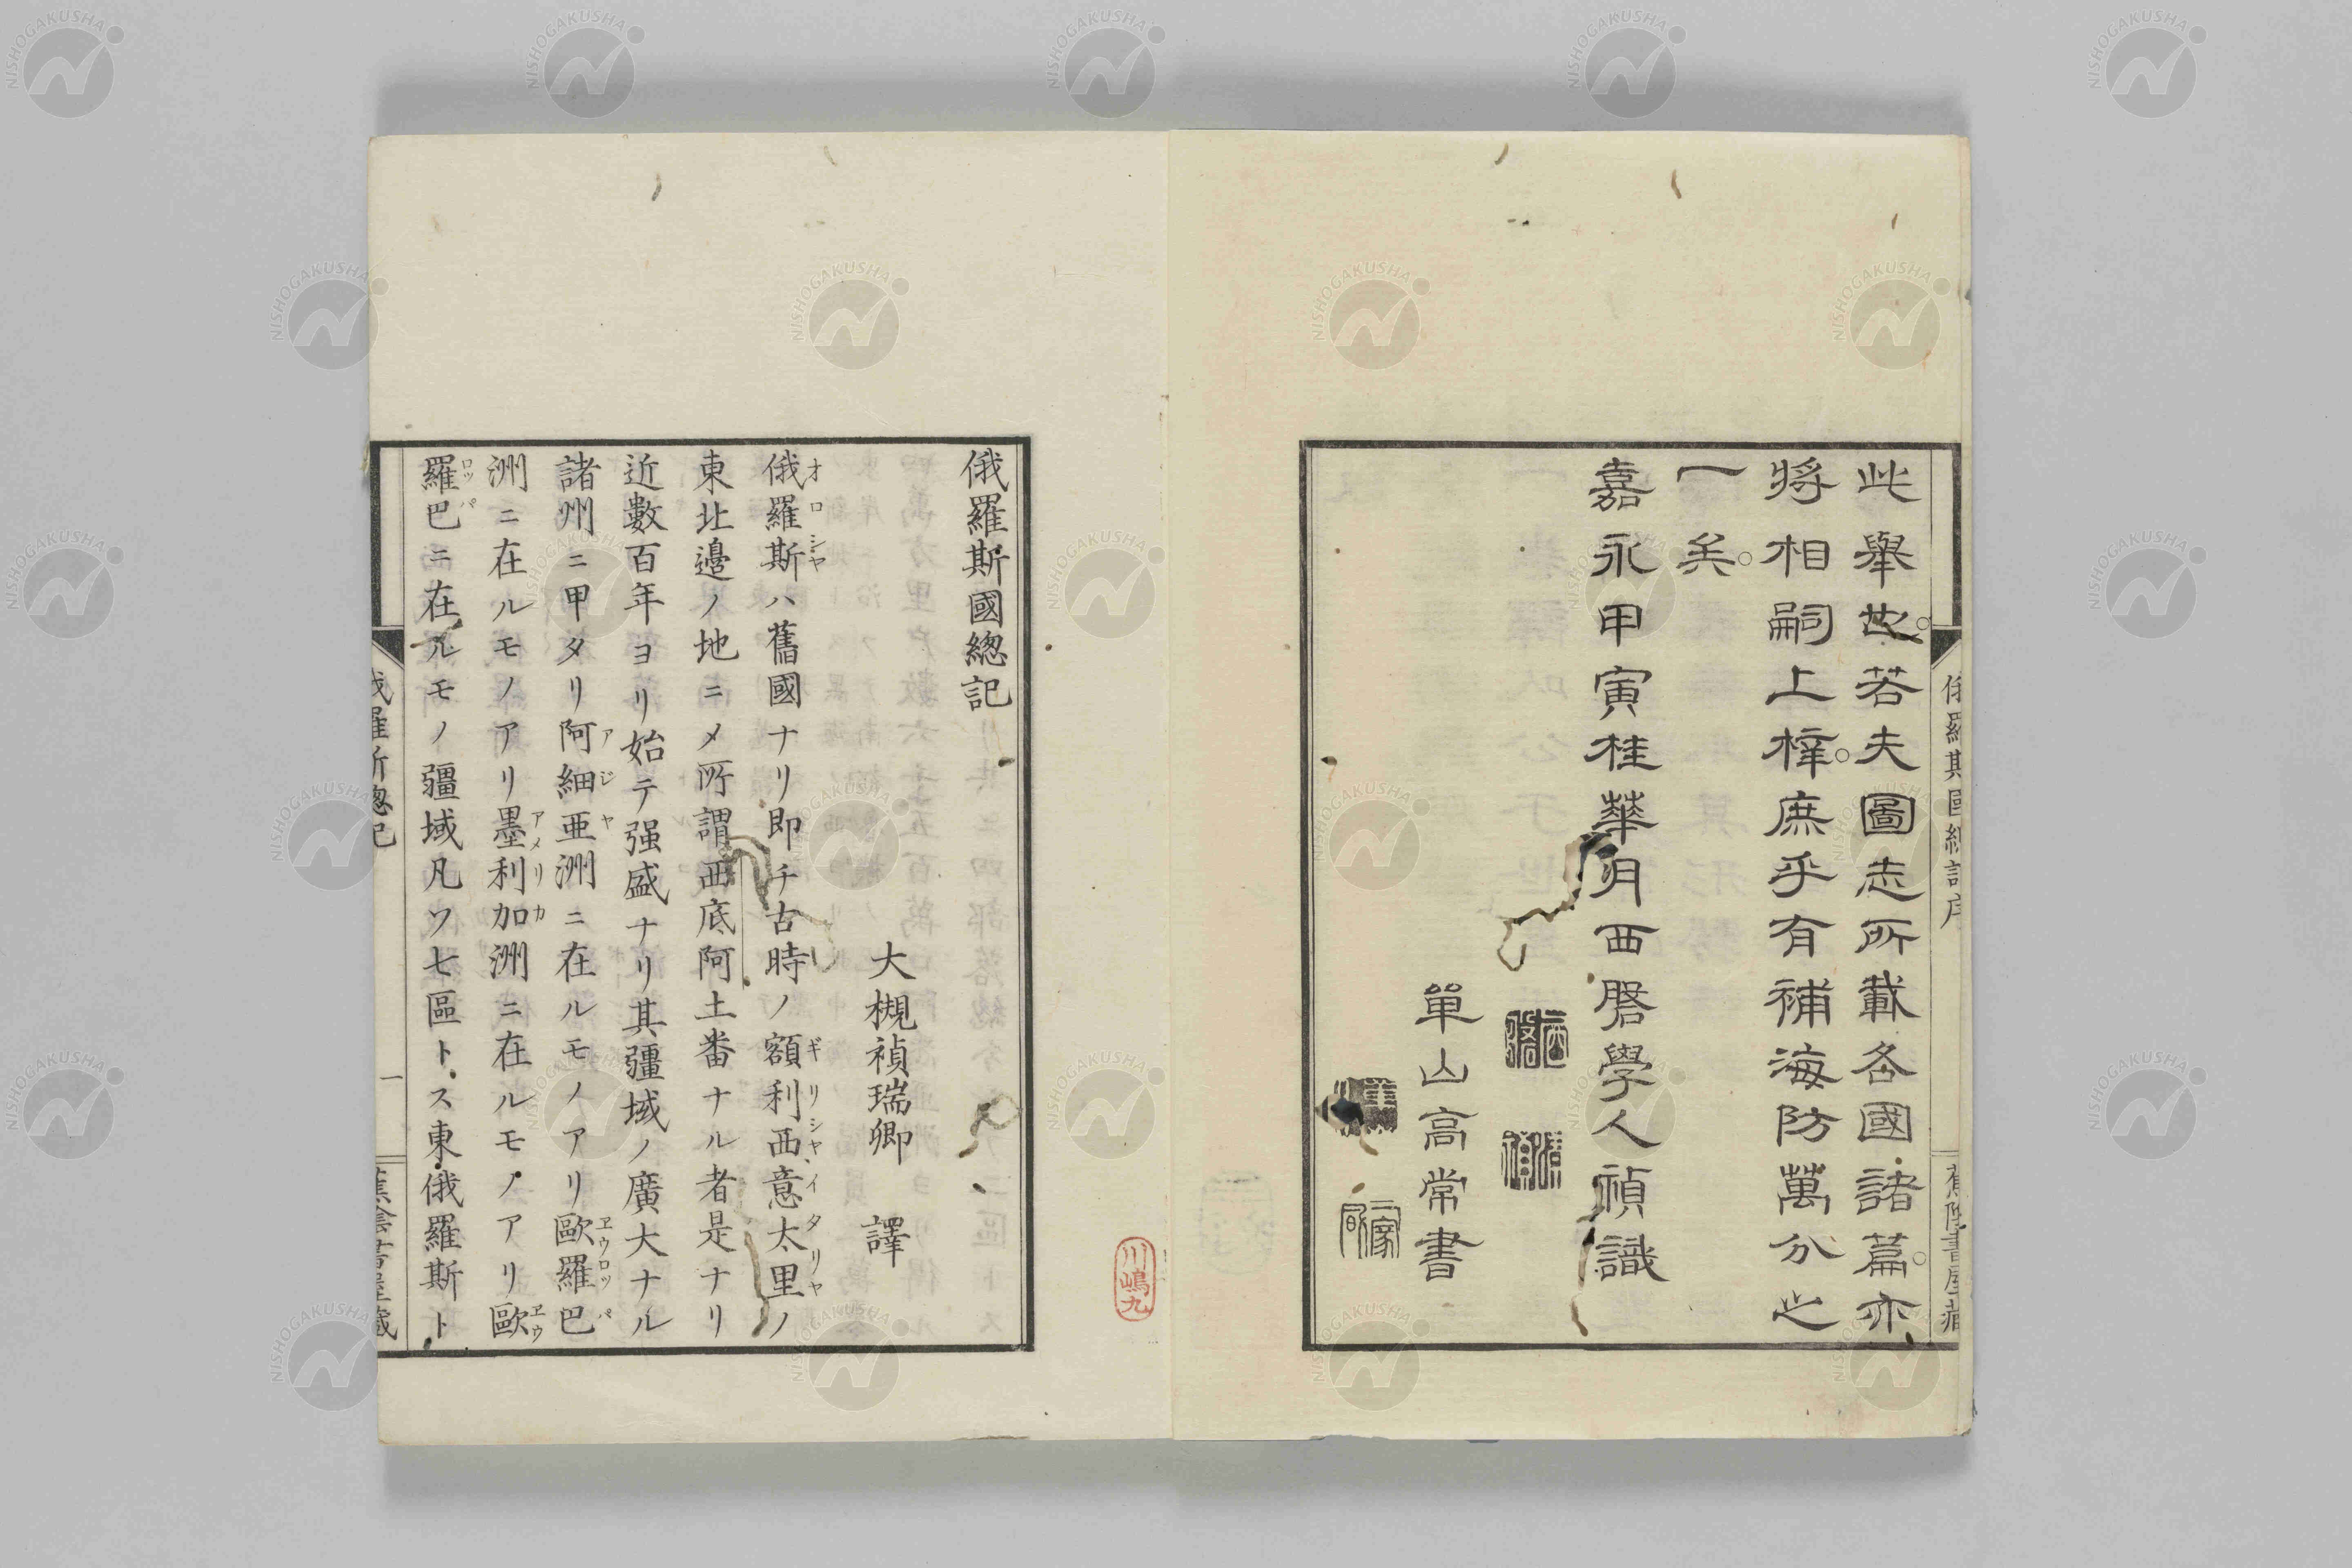 此舉也若夫圖志所載各國諸篇亦
將相嗣上梓庶乎有補海防萬分之
一矣
嘉永甲寅桂華月西磐學人禎識
單山高常書
俄羅斯國總記
大槻禎瑞卿 譯
俄羅斯ハ舊國ナリ即チ古時ノ額利西意太里ノ
東北邉ノ地ニメ所謂西底阿土番ナル者是ナリ
近數百年ヨリ始テ强盛ナリ其疆域ノ廣大ナル
諸州ニ甲タリ阿細亜洲ニ在ルモノアリ歐羅巴
洲ニ在ルモノアリ墨利加洲ニ在ルモノアリ歐
羅巴ニ在ルモノ疆域凡ソ七區トス東俄羅斯ト
川嶋九
NISHOGAKUSHA